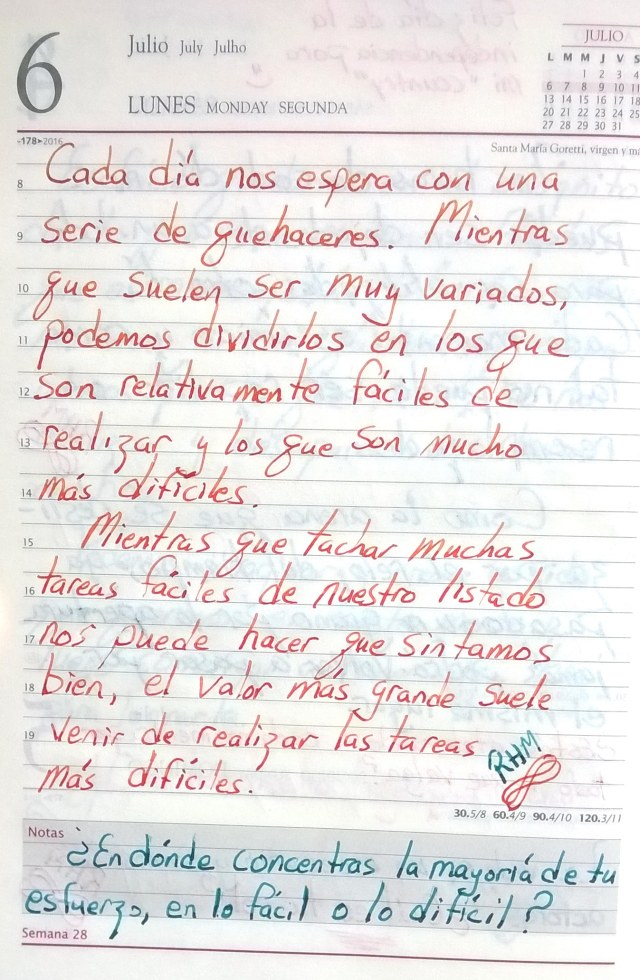 6
Julio July Julho
LUNES MONDAY SEGUNDA
JULIO
L M M J V S
1 2 3 4
6 7 8 9 10 11
13 14 15 16 17 18
20 21 22 23 24 25
27 28 29 30 31
-178▸2016
Santa María Goretti, virgen y
8 Cada día nos espera con una
9 serie de quehaceres. Mientras
10 que suelen ser muy variados,
11 podemos dividirlos en los que
12 son relativamente fáciles de
13 realizar y los que son mucho
14 más difíciles.
15 Mientras que tachar muchas
16 tareas fáciles de nuestro listado
17 nos puede hacer que sintamos
18 bien, el valor más grande suele
19 venir de realizar las tareas
más difíciles.
RHM
30.5/8 60.4/9 90.4/10 120.3/11
Notas
¿En dónde concentras la mayoriá de tu
esfuerzo, en lo fácil o lo difícil?
Semana 28